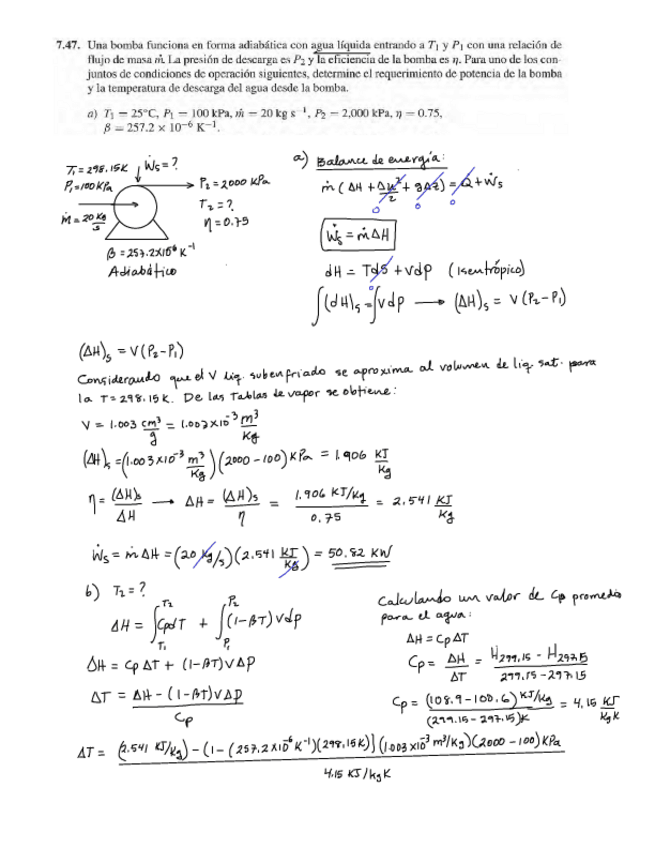 7.47. Una bomba funciona en forma adiabática con agua líquida entrando a T₁ y P₁ con una relación de
flujo de masa ṁ. La presión de descarga es P₂ y la eficiencia de la bomba es η. Para uno de los con-
juntos de condiciones de operación siguientes, determine el requerimiento de potencia de la bomba
y la temperatura de descarga del agua desde la bomba.
a) T₁ = 25°C, P₁ = 100 kPa, ṁ = 20 kg s⁻¹, P₂ = 2,000 kPa, η = 0.75,
β = 257.2 × 10⁻⁶ K⁻¹.
T₁ = 298.15K
Ẇs = ?
P₁ = 100 KPa
P₂ = 2000 KPa
T₂ = ?
η = 0.75
ṁ = 20 Kg/s
β = 257.2x10⁻⁶ K⁻¹
Adiabático
a) Balance de energía:
ṁ (ΔH + Δu²/2 + gΔz) = Q + Ẇs
0 0 0
Ẇs = ṁΔH
dH = TdS + Vdp (Isentrópico)
0
∫(dH)s = ∫Vdp → (ΔH)s = V(P₂-P₁)
(ΔH)s = V(P₂-P₁)
Considerando que el V líq. subenfriado se aproxima al volumen de líq. sat. para
la T = 298.15K. De las Tablas de vapor se obtiene:
V = 1.003 cm³/g = 1.003x10⁻³ m³/Kg
(ΔH)s = (1.003x10⁻³ m³/Kg)(2000-100)KPa = 1.906 KJ/Kg
η = (ΔH)s/ΔH → ΔH = (ΔH)s/η = 1.906 KJ/Kg / 0.75 = 2.541 KJ/Kg
Ẇs = ṁΔH = (20 Kg/s)(2.541 KJ/Kg) = 50.82 KW
b) T₂ = ?
ΔH = ∫T₁T₂ CpdT + ∫P₁P₂ (1-βT)Vdp
ΔH = CpΔT + (1-βT)VΔP
ΔT = ΔH - (1-βT)VΔP / Cp
Calculando un valor de Cp promedio
para el agua:
ΔH = CpΔT
Cp = ΔH/ΔT = H299.15 - H297.15 / 299.15-297.15
Cp = (108.9-100.6) KJ/Kg / (299.15-297.15)K = 4.15 KJ/KgK
ΔT = (2.541 KJ/Kg) - (1-(257.2x10⁻⁶ K⁻¹)(298.15K)](1.003x10⁻³ m³/Kg)(2000-100)KPa
4.15 KJ/kgK